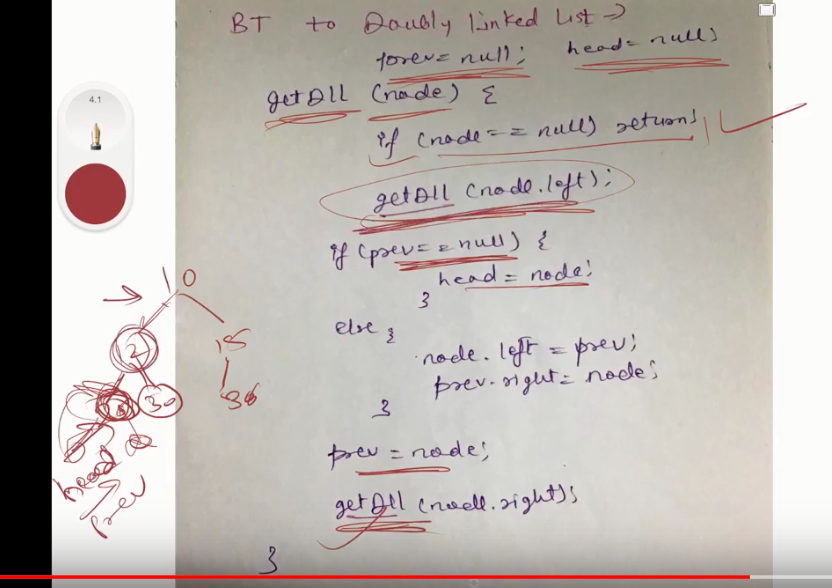 BT to Doubly linked list →
prev = null; head = null;
getDll (node) {
if (node == null) return;
getDll (node.left);
if (prev == null) {
head = node;
}
else {
node.left = prev;
prev.right = node;
}
prev = node;
getDll (node.right);
}
4.1
10
2
15
30
36
head
prev